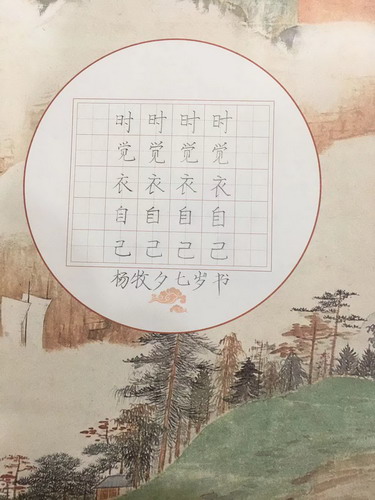 时时时时
觉觉觉觉
衣衣衣衣
自自自自
己己己己
杨牧夕七岁书